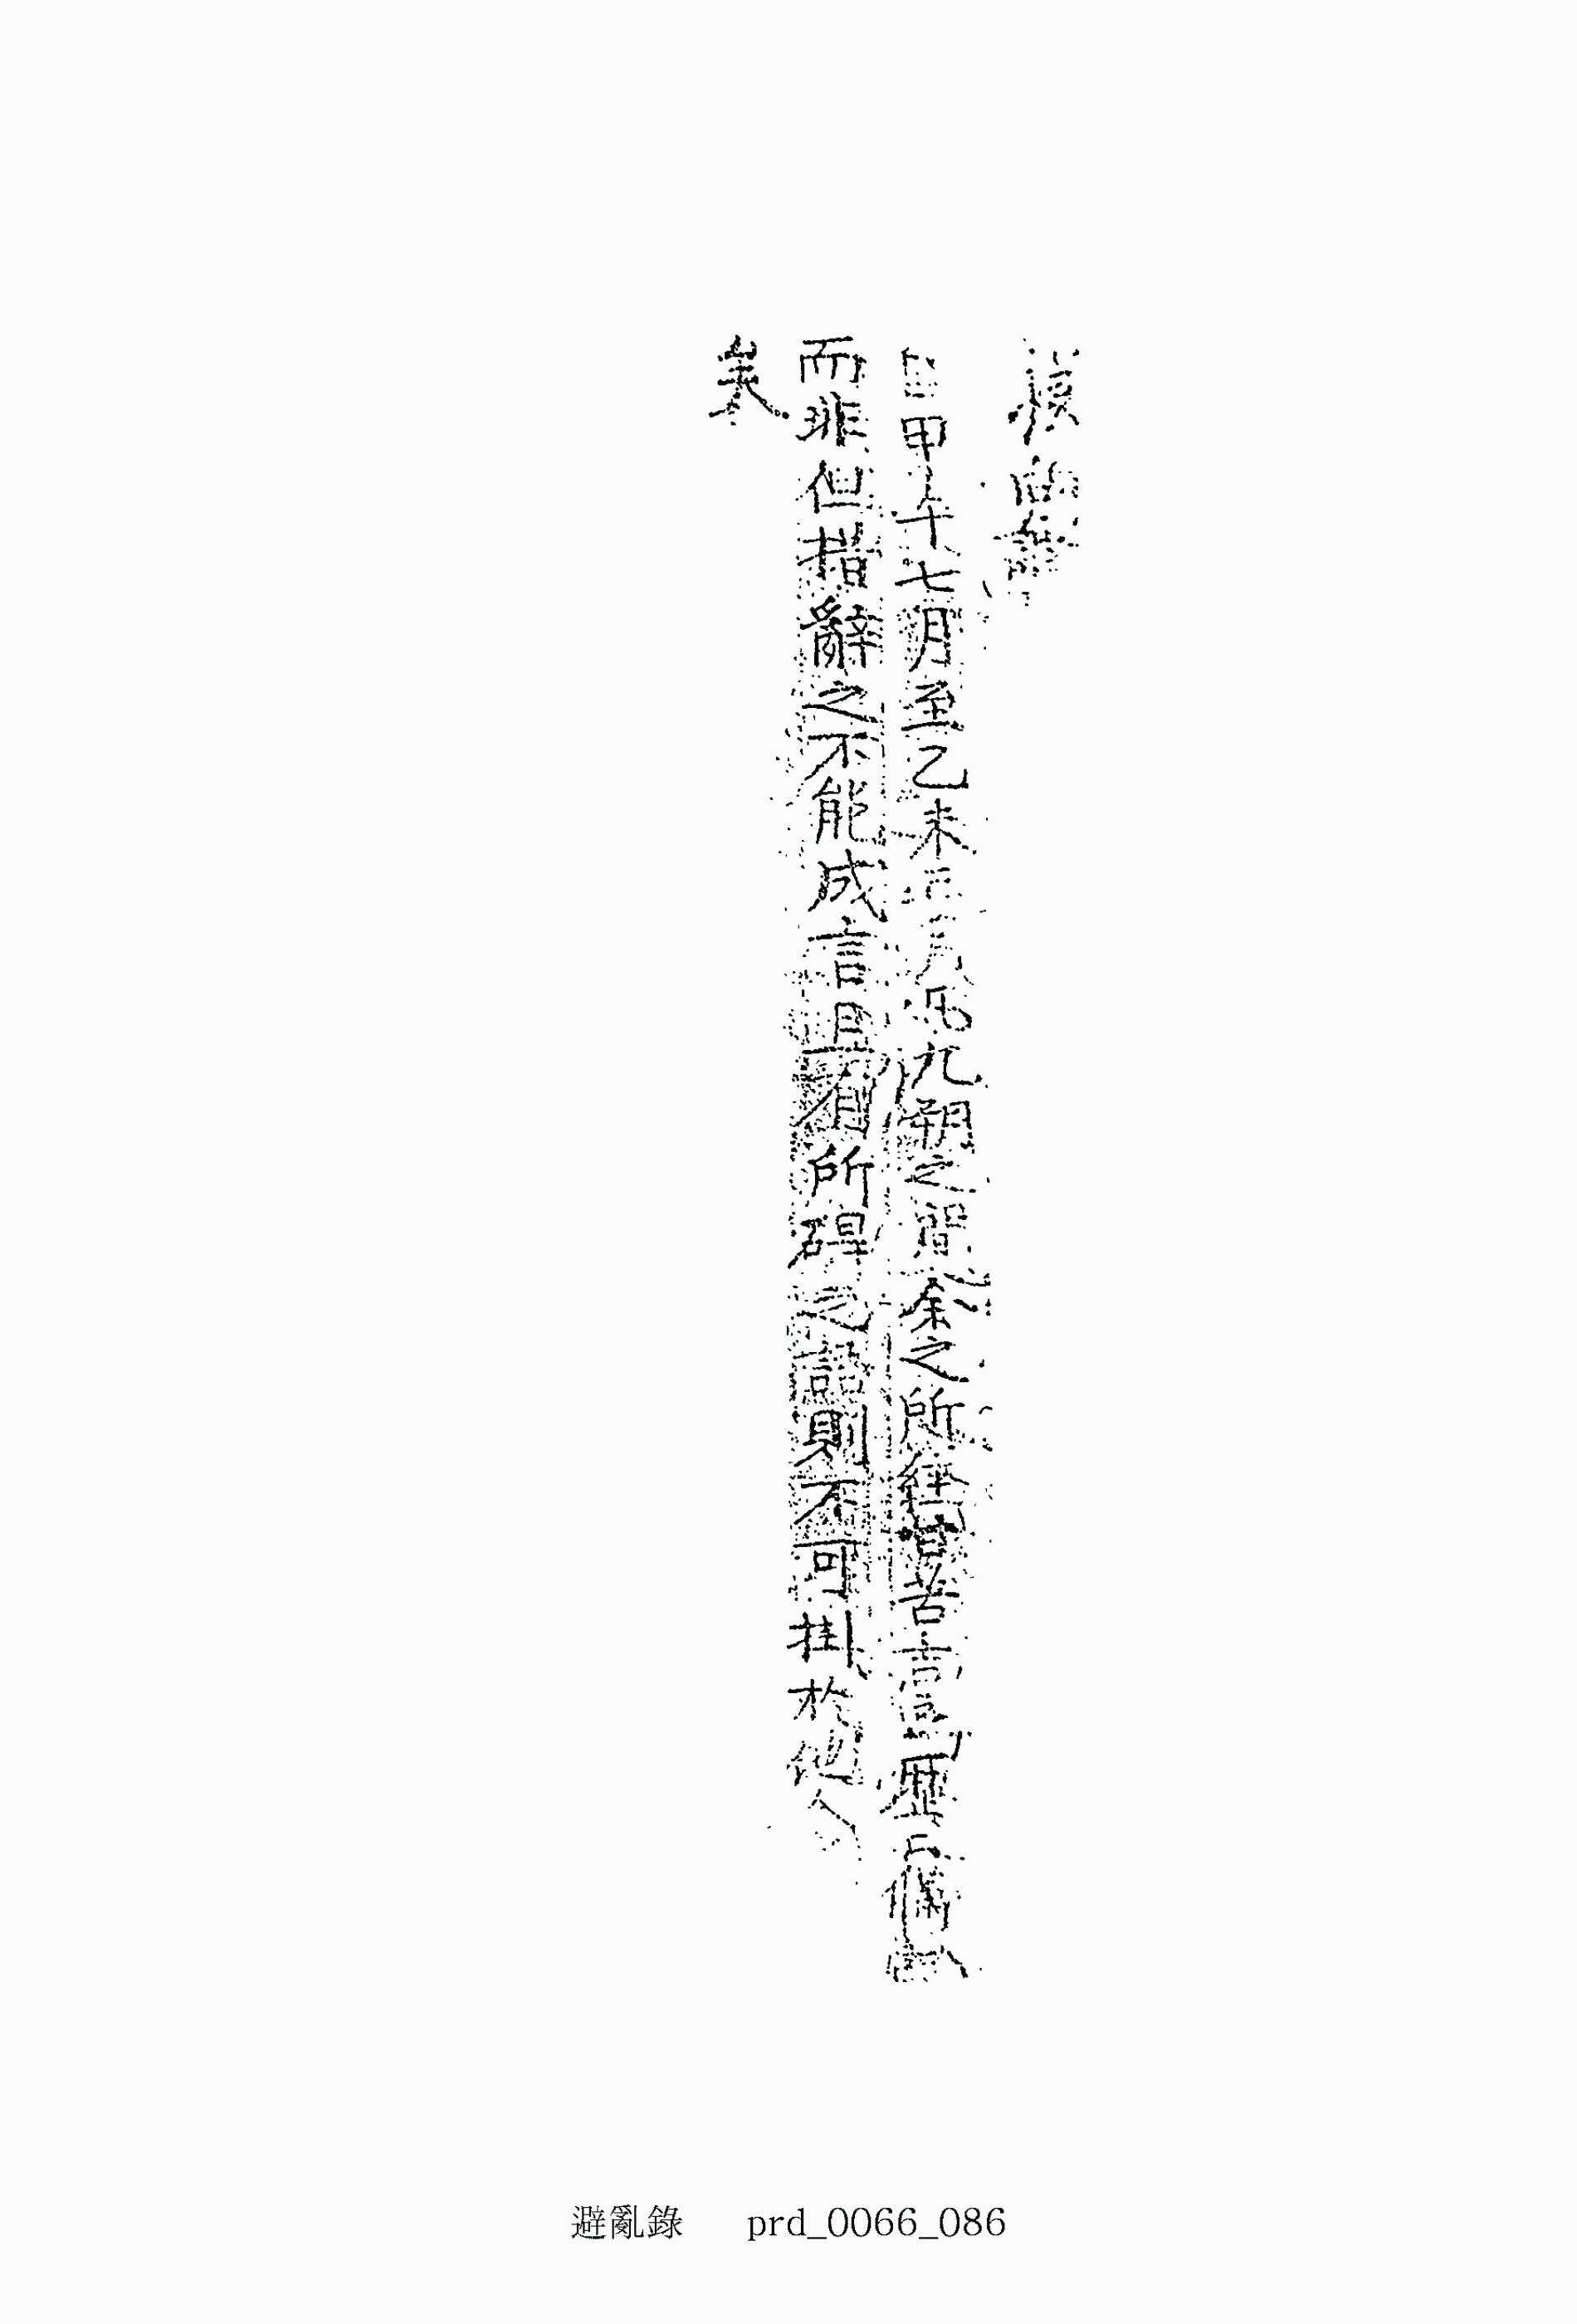 自甲午七月至乙未三月凡九朔之間余之所經皆苦言歷備
而非但措辭之不能成言且有所碍之語則不可掛於他人
矣
避亂錄 prd_0066_086